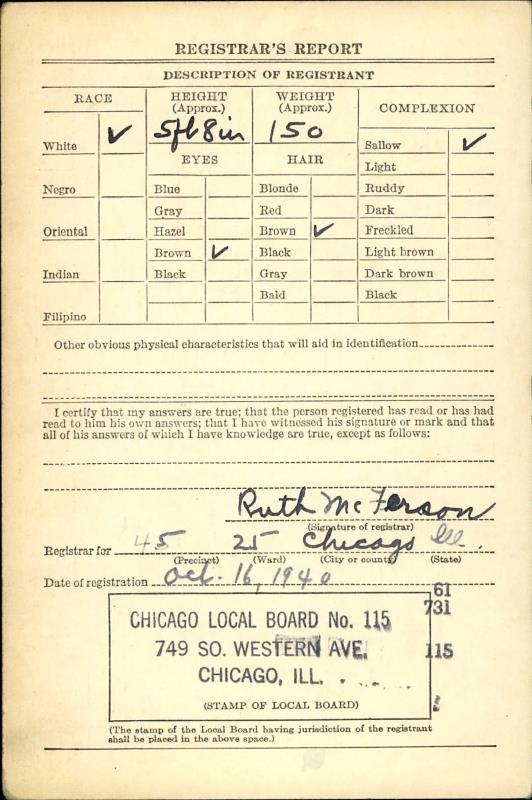 REGISTRAR'S REPORT
DESCRIPTION OF REGISTRANT
RACE
HEIGHT (Approx.)
WEIGHT (Approx.)
COMPLEXION
White ✓
5ft 8in
150
Sallow ✓
EYES
HAIR
Light
Negro
Blue
Blonde
Ruddy
Gray
Red
Dark
Oriental
Hazel
Brown ✓
Freckled
Brown ✓
Black
Light brown
Indian
Black
Gray
Dark brown
Bald
Black
Filipino
Other obvious physical characteristics that will aid in identification
I certify that my answers are true; that the person registered has read or has had
read to him his own answers; that I have witnessed his signature or mark and that
all of his answers of which I have knowledge are true, except as follows:
Ruth McFerson
(Signature of registrar)
Registrar for 45 25 Chicago Ill.
(Precinct) (Ward) (City or county) (State)
Date of registration Oct. 16, 1940
61
731
115
CHICAGO LOCAL BOARD No. 115
749 SO. WESTERN AVE.
CHICAGO, ILL.
(STAMP OF LOCAL BOARD)
(The stamp of the Local Board having jurisdiction of the registrant
shall be placed in the above space.)